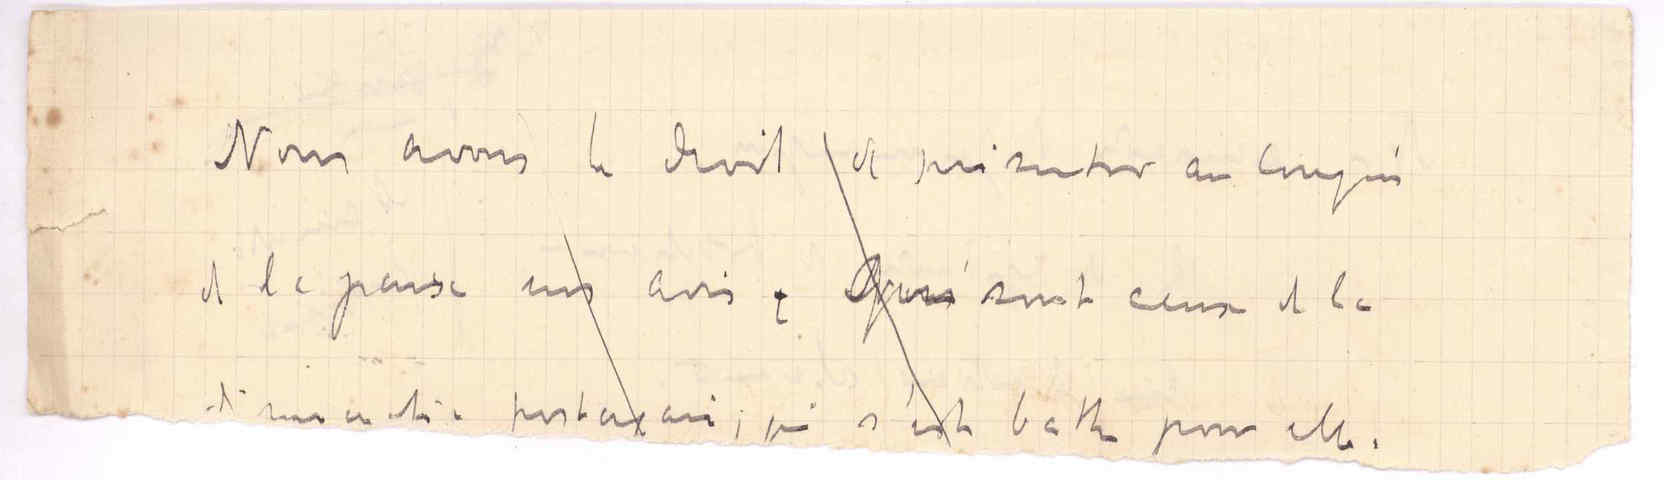 Nous avons le droit de présenter au Congrès
de la pensée nos avis, qui sont ceux de la
démocratie , qui s'est battu pour elle.